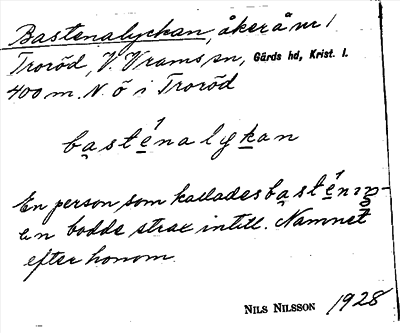 Bastenalyckan, åker å nr 1
Troröd, V. Vrams sn, Gärds hd, Krist. l.
400 m. N. ö i Troröd
bastenalykan
En person som kallades
en bodde strax intill. Namnet
efter honom.
NILS NILSSON 1928